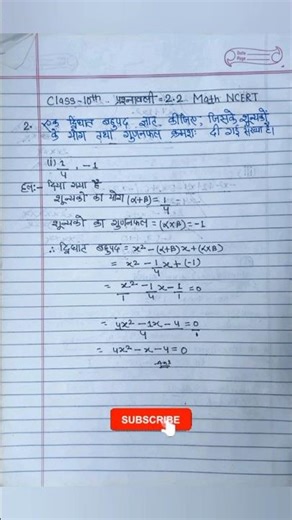 Class-10th - प्रश्नावली-2.2 Math NCERT
2. एक द्विघात बहुपद ज्ञात कीजिए, जिसके शून्यकों
के योग तथा गुणनफल क्रमशः दी गई संख्या है।
(i) 1/4, -1
हल:- दिया गया है
शून्यकों का योग (α+β) = 1/4
शून्यकों का गुणनफल = (α×β) = -1
∴ द्विघात बहुपद = x² - (α+β)x + (α×β)
= x² - 1/4 x + (-1)
= x²/1 - 1/4 x - 1/1 = 0
= 4x² - 1x - 4/4 = 0/1
= 4x² - x - 4 = 0
SUBSCRIBE